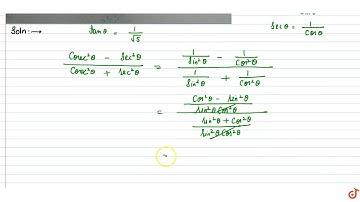 Soln:⟶ tanθ = 1/√5 secθ = 1/cosθ
(cosec²θ - sec²θ)/(cosec²θ + sec²θ) = (1/sin²θ - 1/cos²θ)/(1/sin²θ + 1/cos²θ)
= ((cos²θ - sin²θ)/(sin²θ cos²θ))/((sin²θ + cos²θ)/(sin²θ cos²θ))